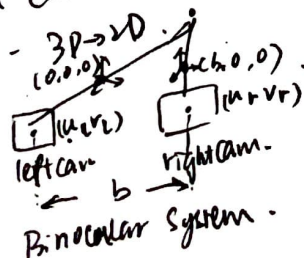 - 3D → 2D
(0,0,0)
(b,0,0)
(uₗ vₗ)
(uᵣ vᵣ)
left cam
right cam.
← b →
Binocular System.